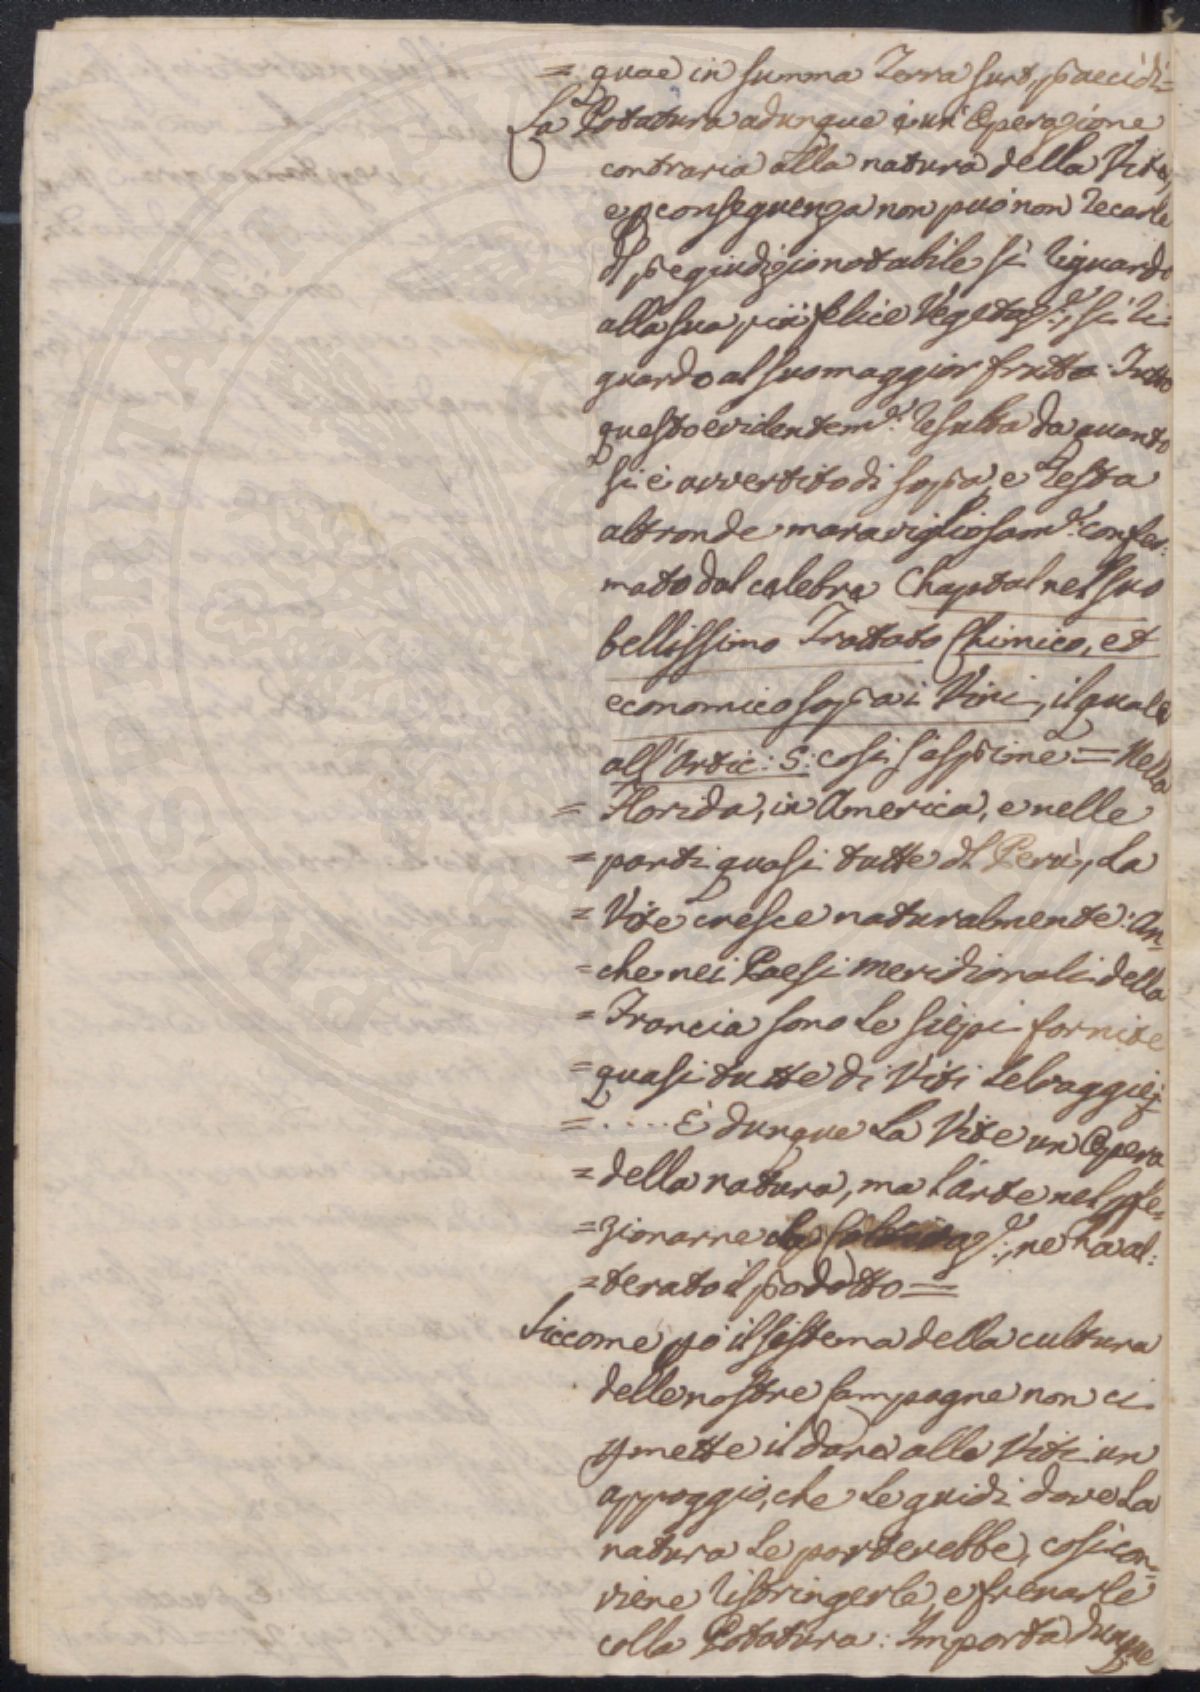 = quae in summa Terra sunt, praecidi=
La Potatura adunque è un' Operazione
contraria alla natura della Vite,
e p conseguenza non può non recarle
dl pregiudizio notabile sì riguardo
alla sua più felice Vegetaz.e, sì ri-
guardo al suo maggior frutto. Tutto
questo evidentem.e resulta da quanto
si è avvertito di sopra, e resta
altronde maravigliosam.e confer:
mato dal celebre Chaptal nel suo
bellissimo Trattato Chimico, et
economico sopra i Vini, il quale
all'Artic: 5: così s'esprime = Nella
= Florida, in America, e nelle
= parti quasi tutte dl Perù, la
= Vite cresce naturalmente: An-
= che nei Paesi meridionali della
= Francia sono le siepi fornite
= quasi tutte di Viti selvaggie;
= ..... È dunque la Vite un Opera
= della natura, ma l'arte nel pfe-
= zionarne la Coltivaz.e, ne ha al:
= terato il prodotto =
Siccome pò il sistema della cultura
delle nostre Campagne non ci
pmette il dare alle Viti un
appoggio, che le guidi dove la
natura le porterebbe, così con-
viene ristringerle, e frenarle
colla Potatura: Importa dunque